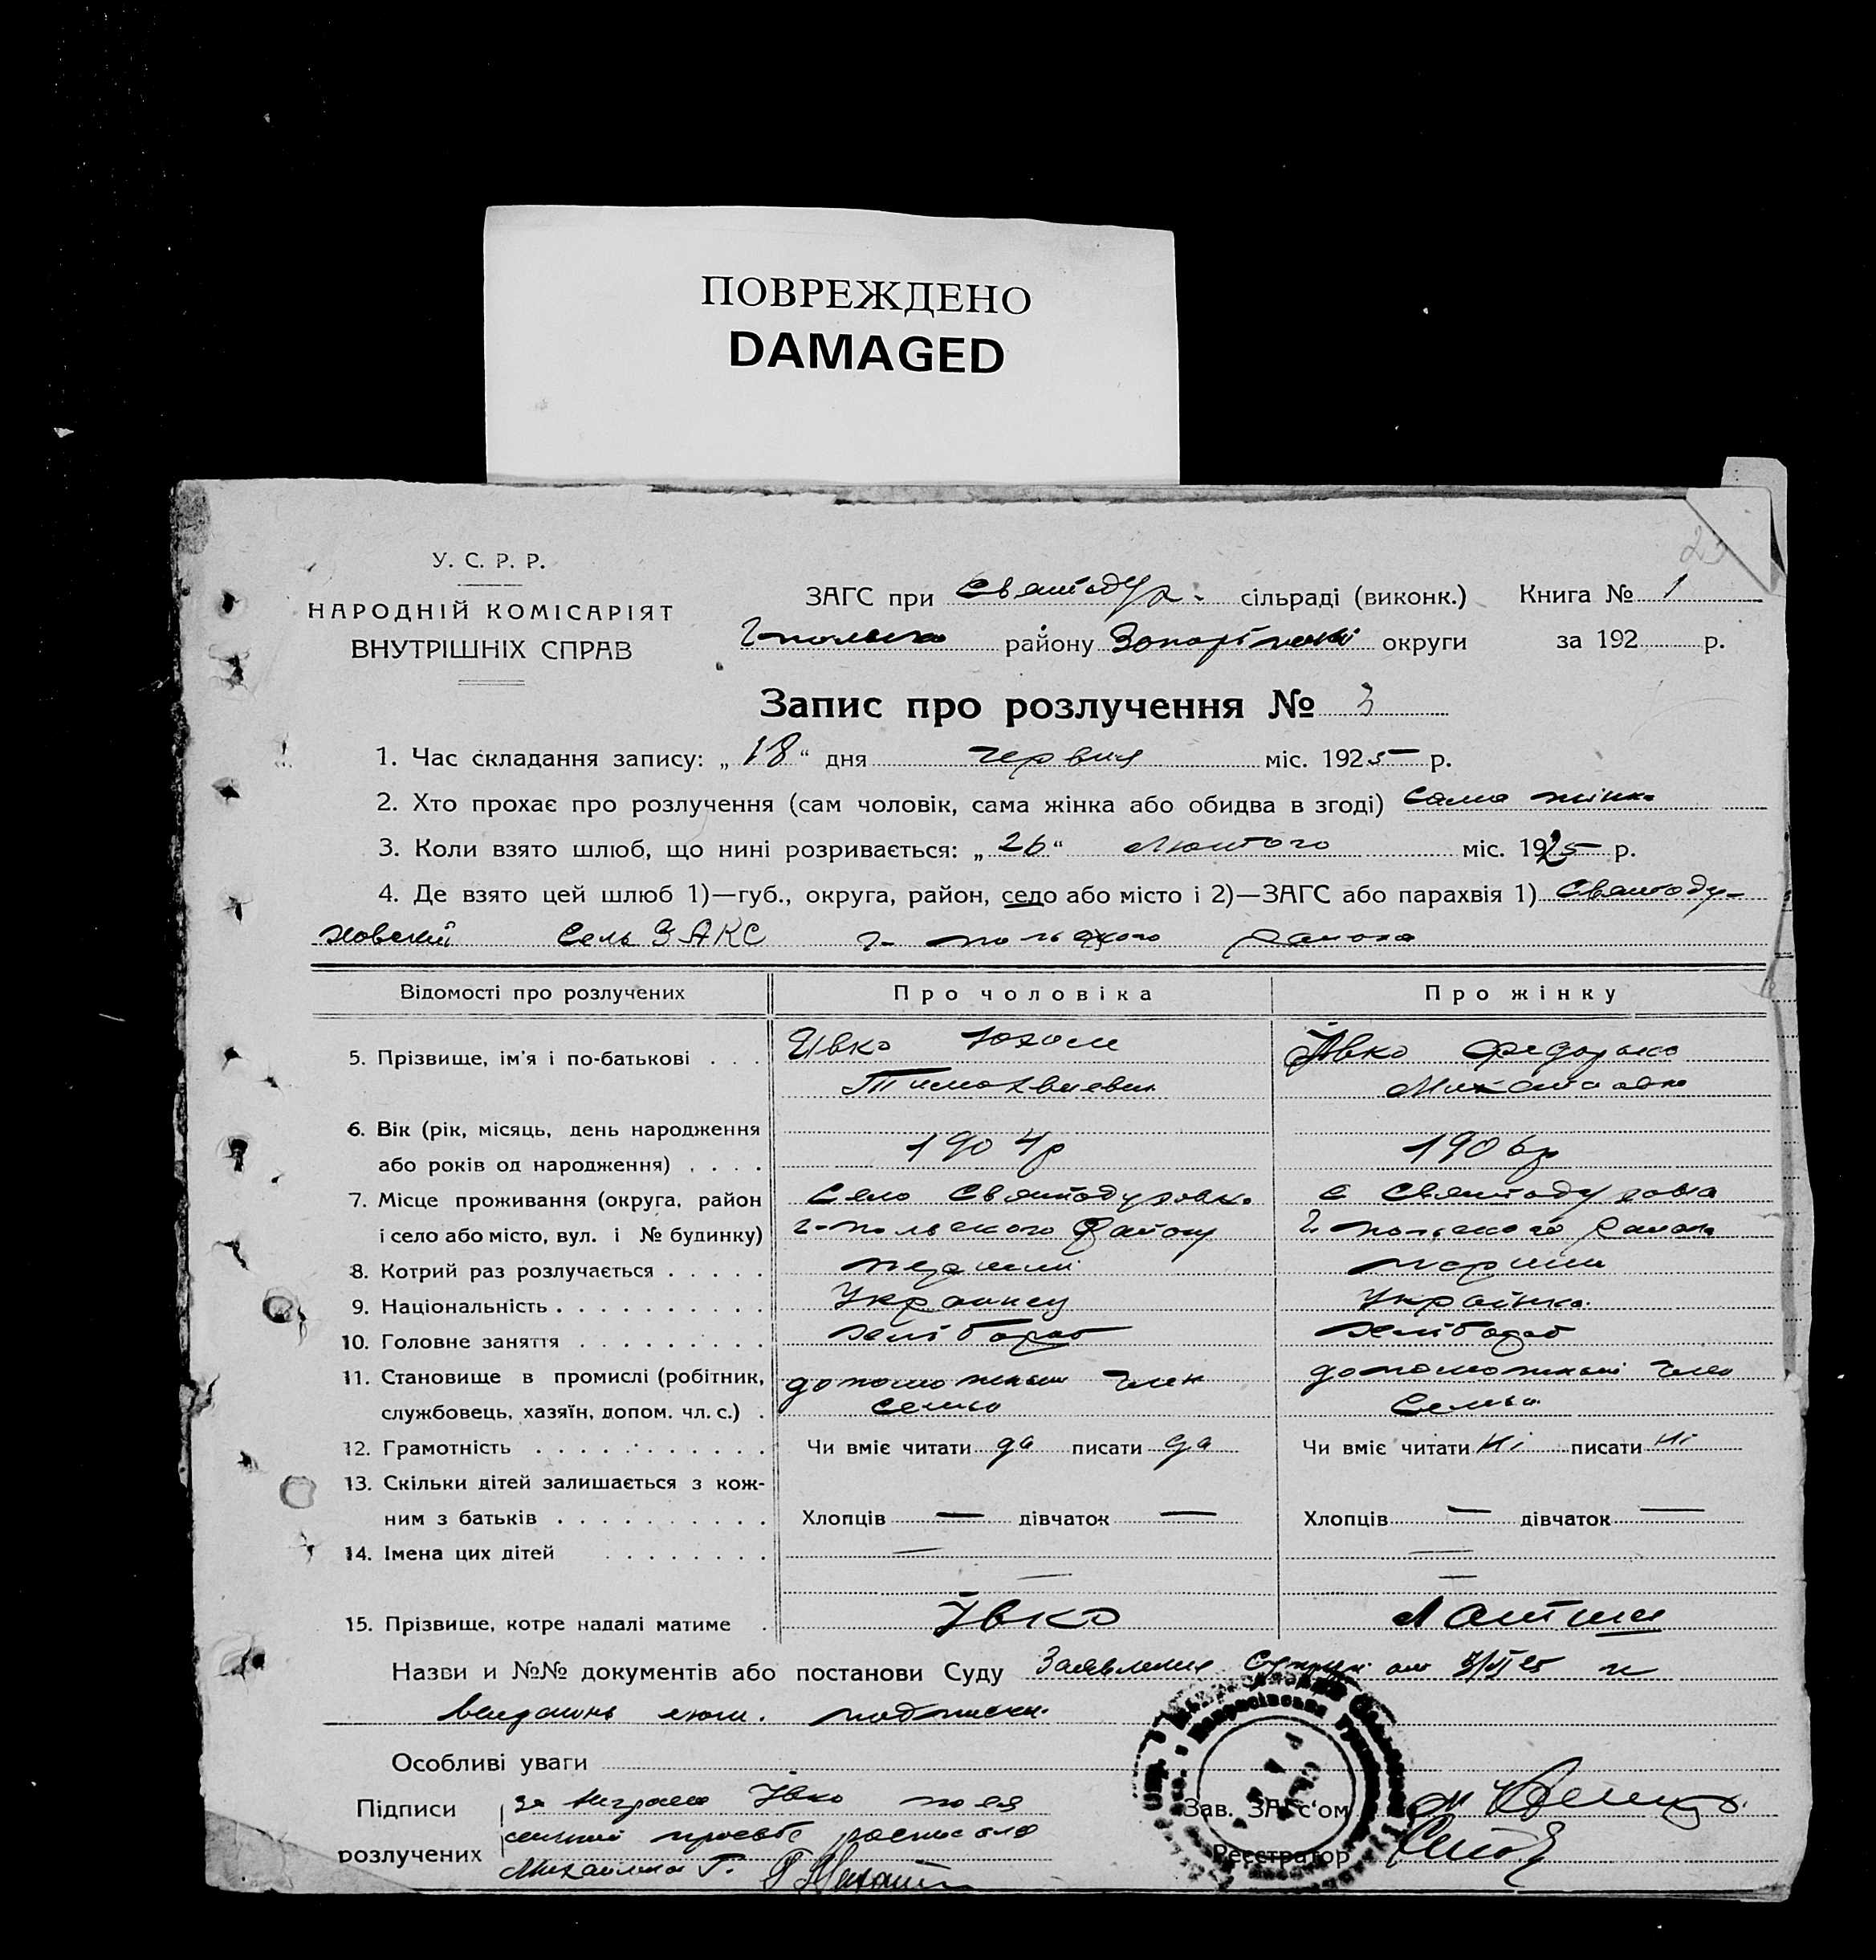 ПОВРЕЖДЕНО
DAMAGED
У. С. Р. Р.
НАРОДНІЙ КОМІСАРІЯТ
ВНУТРІШНІХ СПРАВ
ЗАГС при Святодух. сільраді (виконк.) Книга № 1
району округи за 192 р.
Запис про розлучення № 3
1. Час складання запису: „18“ дня червня міс. 1925 р.
2. Хто прохає про розлучення (сам чоловік, сама жінка або обидва в згоді) сама жінка
3. Коли взято шлюб, що нині розривається: „26“ Лютого міс. 1925 р.
4. Де взято цей шлюб 1)—губ., округа, район, село або місто і 2)—ЗАГС або парахвія 1) Святоду-
ховский Сель ЗАКС Г-польского района
Відомості про розлучених Про чоловіка Про жінку
5. Прізвище, ім'я і по-батькові . . . Ивко Юхом Ивко
6. Вік (рік, місяць, день народження
або років од народження) . . . . 1904р 1906р
7. Місце проживання (округа, район Село Святодуховка с Святодуховка
і село або місто, вул. і № будинку) Г-польского району Г-польского района
8. Котрий раз розлучається . . . . . перший перший
9. Національність . . . . . . . . . . Украинец Украінка
10. Головне заняття . . . . . . . . . хлібороб хлібороб
11. Становище в промислі (робітник, член член
службовець, хазяїн, допом. чл. с.) . семьи семьи
12. Грамотність . . . . . . . . . . . Чи вміє читати да писати да Чи вміє читати Ні писати Ні
13. Скільки дітей залишається з кож-
ним з батьків . . . . . . . . . . Хлопців — дівчаток — Хлопців — дівчаток —
14. Імена цих дітей . . . . . . . . — —
— —
15. Прізвище, котре надалі матиме . Ивко
Назви и №№ документів або постанови Суду Заявление
Особливі уваги
Підписи Ивко
розлучених
Зав. ЗАГс‘ом
Реєстратор